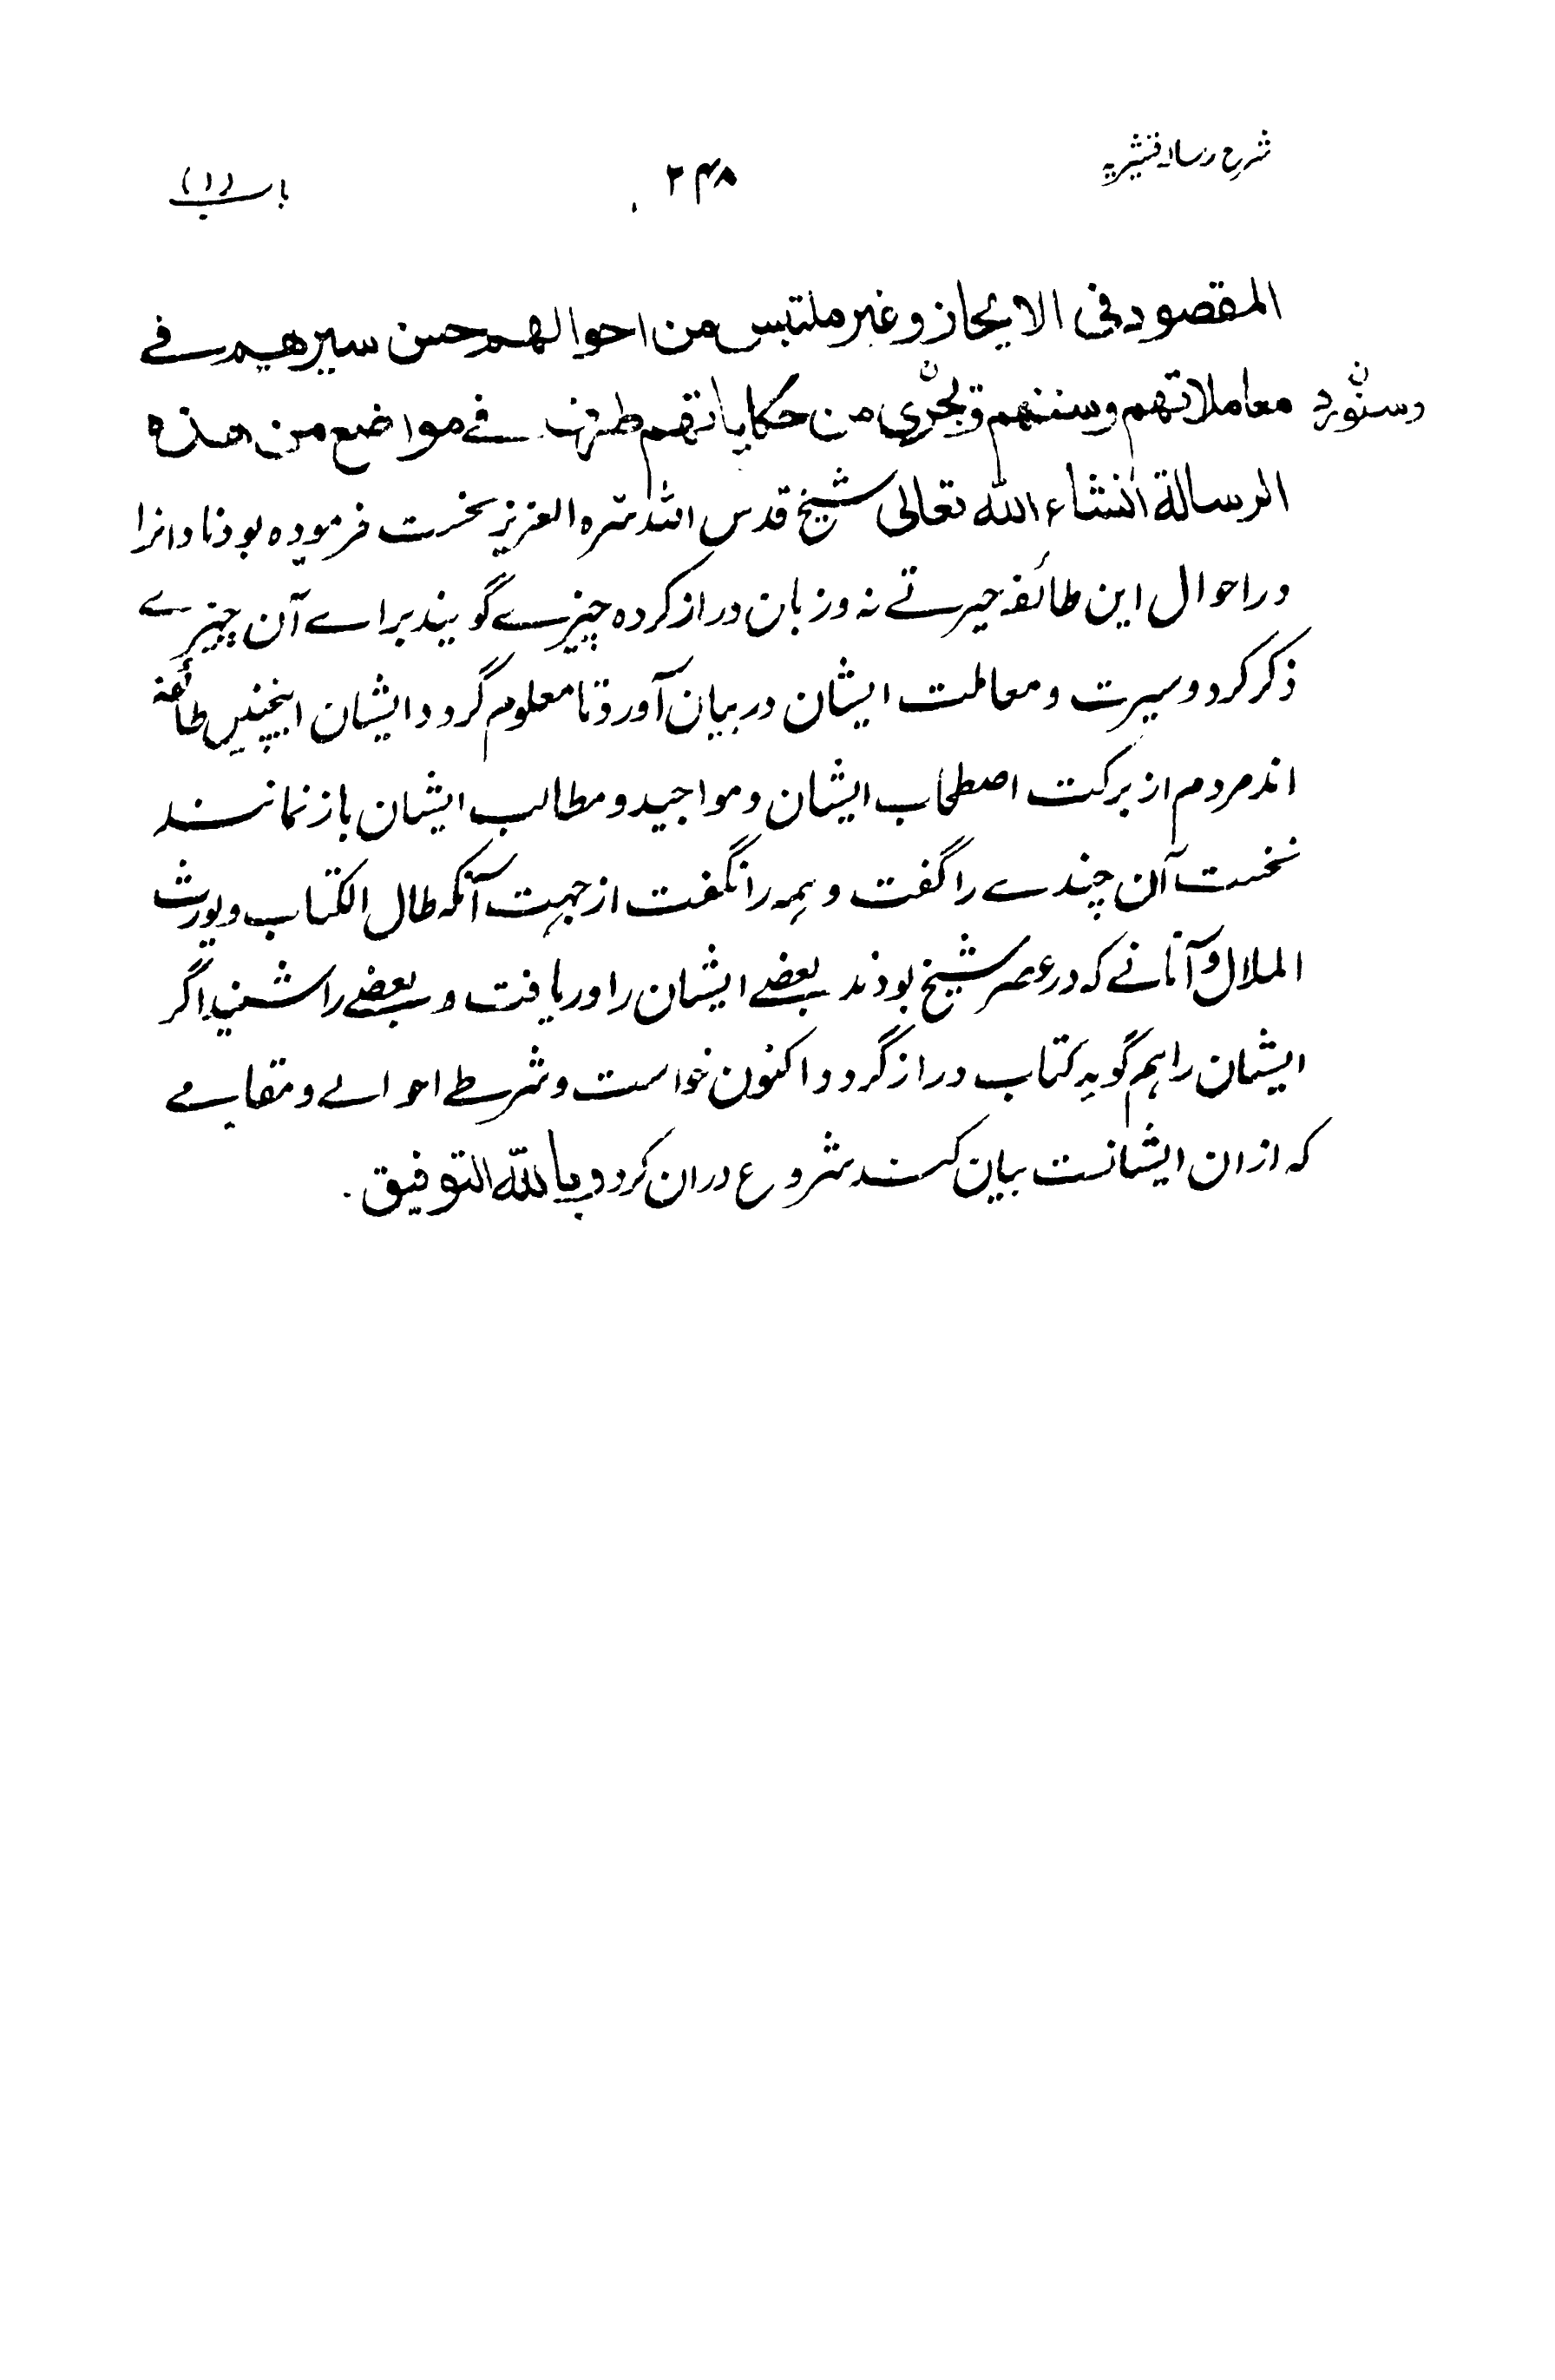 شرح رساله قشیریه
۲۴۸
باب (۱)
المقصود فی الایجاز و غیر ملتبس من احوالهم حسن سیرهم فے
معاملاتهم وسننهم و یجری من حکایاتهم طرف فے مواضع من هذه
ن وسنورد
الرسالة انشاء الله تعالی شیخ قدس الله سره العزیز نخست فرموده بود نادانرا
در احوال این طائفه حیرتے نه و زبان دراز کرده چیزے گویند براے آن چیزے
ذکر کرد و سیرت و معاملت ایشان در بیان آورد تا معلوم گردد ایشان اینچنیں طائفه
اند مردم از برکت اصطحاب ایشان و مواجید و مطالب ایشان باز نمانند
نخست آن چندے را گفت و ہمہ را نگفت از جہت آنکه طال الکتاب و یورث
الملال و آنانے که در عصر شیخ بودند بعضے ایشان را دریافت و بعضے را شنید اگر
ایشان را ہم گوید کتاب دراز گردد اکنون خواست و شرطے احوالے و مقامے
که ازان ایشانست بیان کند شروع دران کرد و بالله التوفیق۔